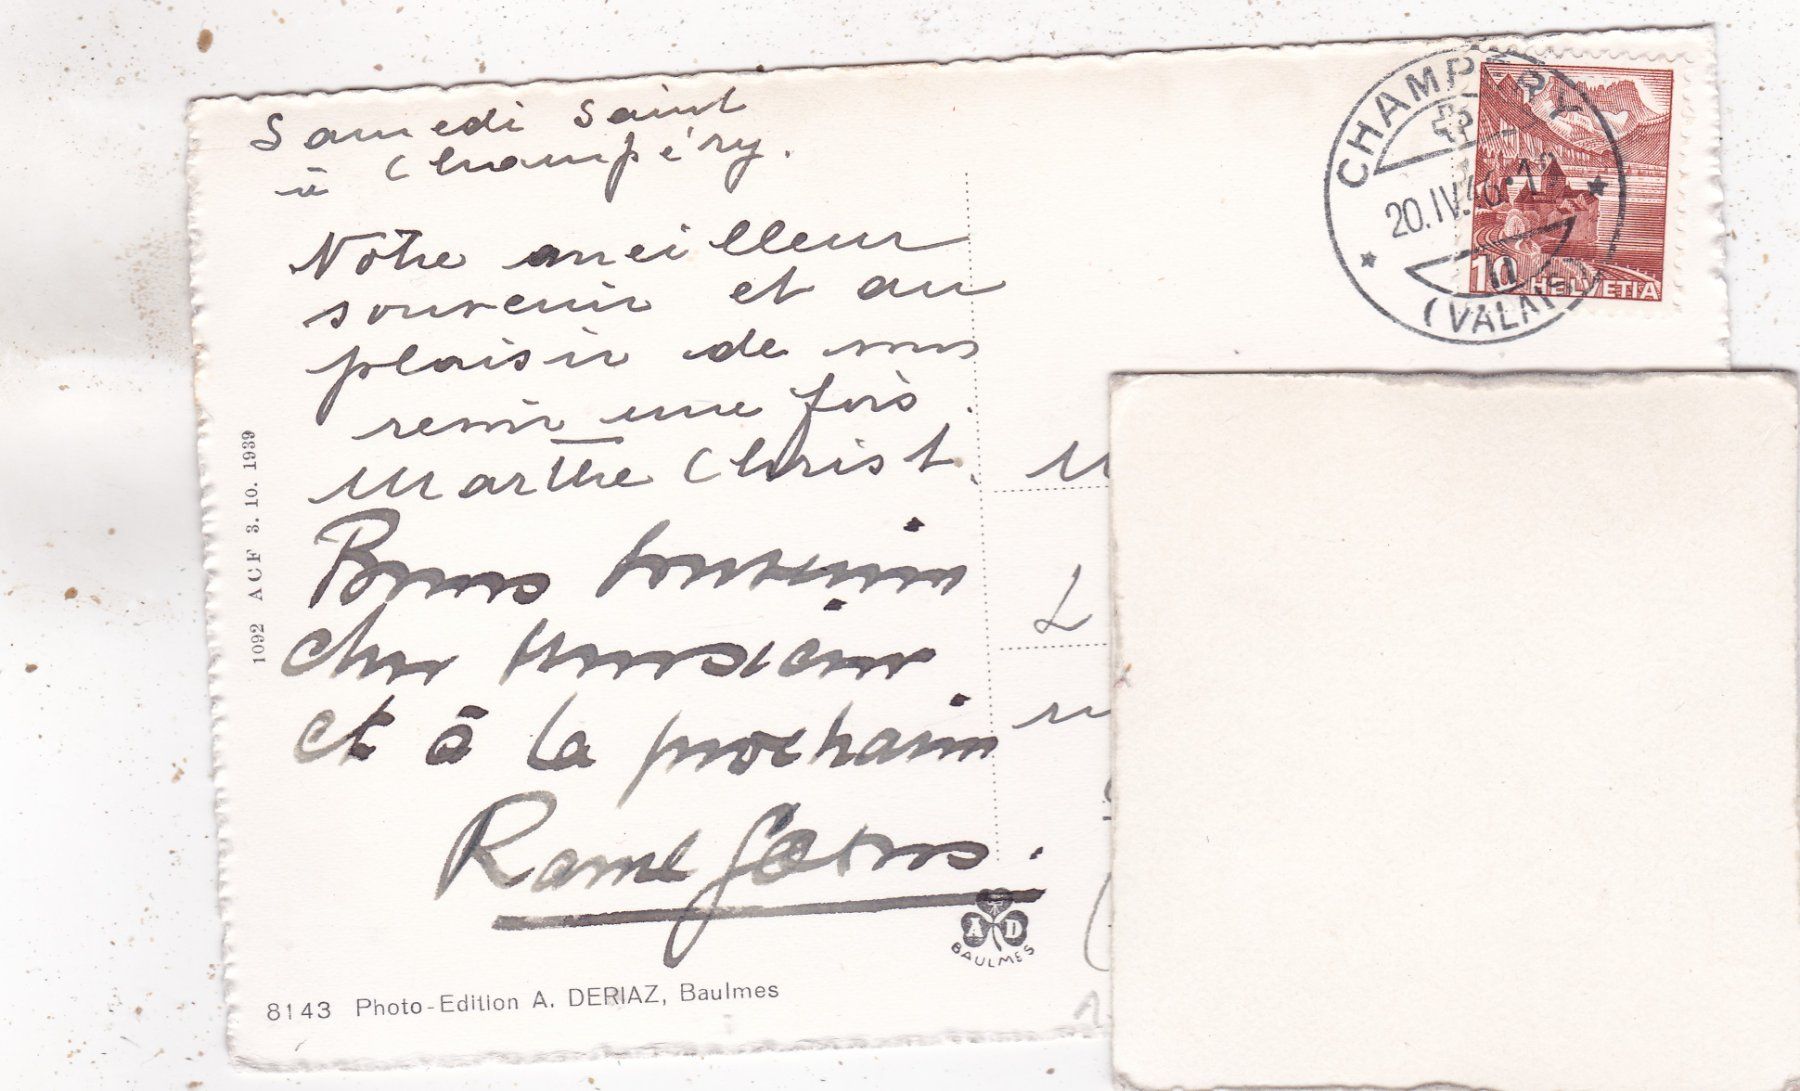 Samedi Saint
à Champéry.
Notre meilleur
souvenir et au
plaisir de vous
revoir une fois.
Marthe Christ.
Bons souvenirs
cher Monsieur
et à la prochaine
M
L
CHAMPÉRY
20.IV.46.12
(VALAIS)
10
HELVETIA
1092 ACF 3. 10. 1939
A D
BAULMES
8143 Photo-Edition A. DERIAZ, Baulmes